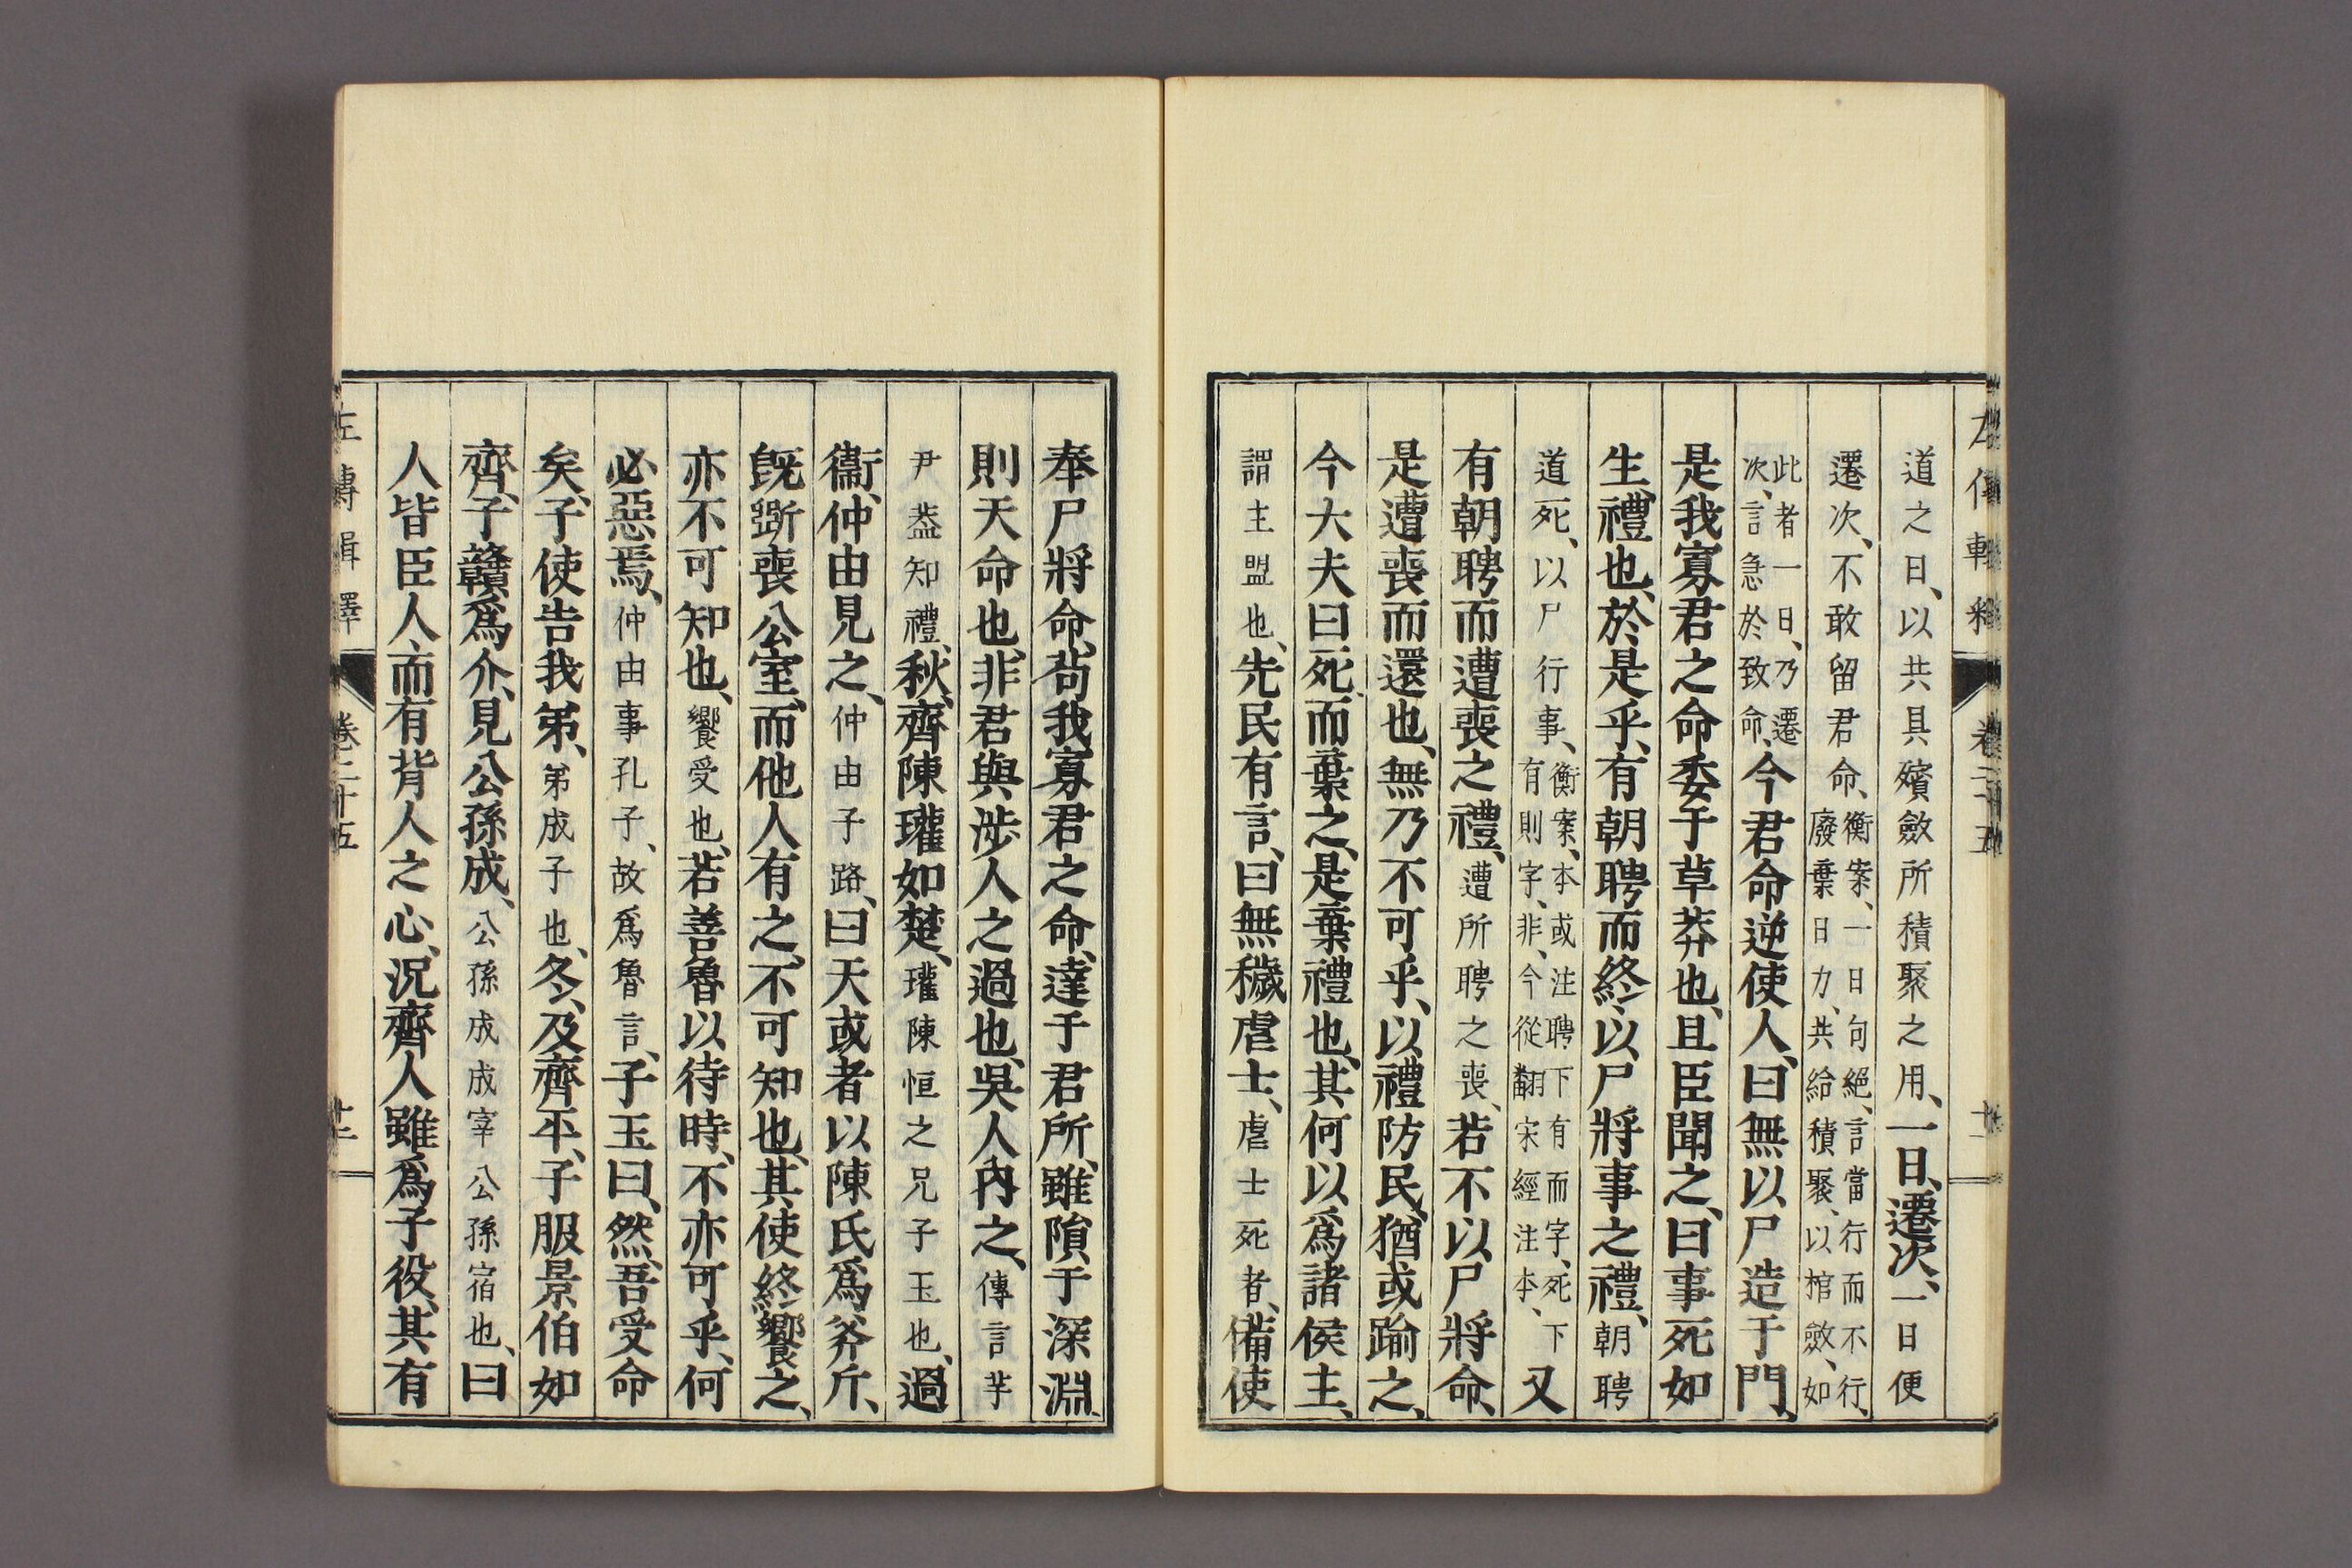 道之日、以共具殯斂所積聚之用、一日、遷次、一日便
遷次、不敢留君命、衡案、一日句絕、言當行而不行、廢棄日力、共給積聚、以棺斂、如
此者一日、乃遷次、言急於致命、今君命逆使人、曰無以尸造于門、
是我寡君之命委于草莽也、且臣聞之、曰事死如
生、禮也、於是乎、有朝聘而終、以尸將事之禮、朝聘
道死、以尸行事、衡案、本或注聘下有而字、死下有則字、非、今從翻宋經注本、又
有朝聘而遭喪之禮、遭所聘之喪、若不以尸將命、
是遭喪而還也、無乃不可乎、以禮防民、猶或踰之、
今大夫曰死、而棄之、是棄禮也、其何以爲諸侯主、
謂主盟也、先民有言、曰無穢虐士、虐士死者、備使
奉尸將命、苟我寡君之命、達于君所、雖隕于深淵、
則天命也、非君與涉人之過也、吳人內之、傳言芋
尹蓋知禮、秋、齊陳瓘如楚、瓘陳恒之兄子玉也、過
衞、仲由見之、仲由子路、曰天或者以陳氏爲斧斤、
旣斲喪公室、而他人有之、不可知也、其使終饗之、
亦不可知也、饗受也、若善魯以待時、不亦可乎、何
必惡焉、仲由事孔子、故爲魯言、子玉曰、然、吾受命
矣、子使告我弟、弟成子也、冬、及齊平、子服景伯如
齊、子贛爲介、見公孫成、公孫成成宰公孫宿也、曰
人皆臣人、而有背人之心、況齊人雖爲子役、其有
左傳輯釋 卷二十五 十二